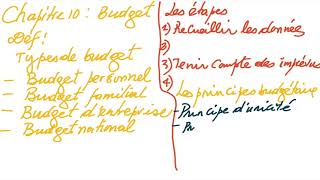 Chapitre 10 : Budget
Def :
Types de budget
- Budget personnel
- Budget familial
- Budget d'entreprise
- Budget national
Les étapes
1) Recueillir les données
2)
3) Tenir compte des imprévus
4)
Les principes budgétaire
- Principe d'unicité
- Pr